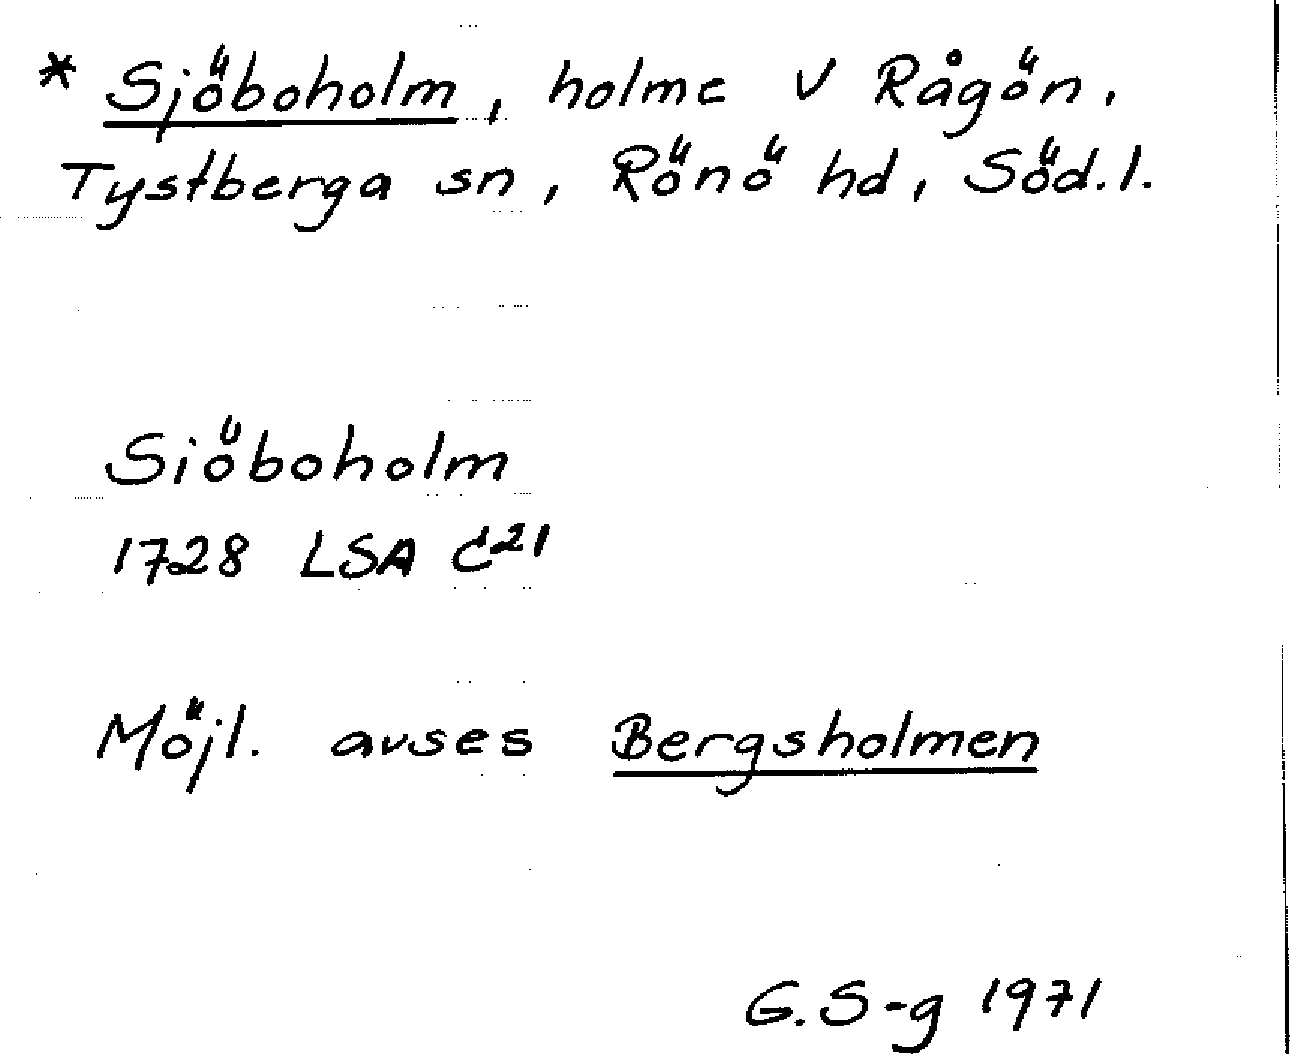 * Sjöboholm, holme V Rågön,
Tystberga sn, Rönö hd, Söd.l.
Siöboholm
1728 LSA C²¹
Möjl. avses Bergsholmen
G.S-g 1971